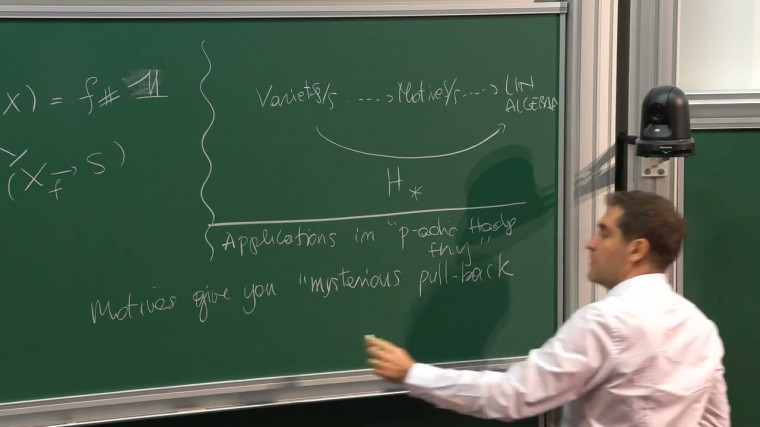 X) = f# 𝟙
(X →f S)
Varietes/s ····> Motifs/s ····> LIN
ALGEBRA
H*
Applications in "p-adic Hodge
thy"
Motives give you "mysterious pull-back